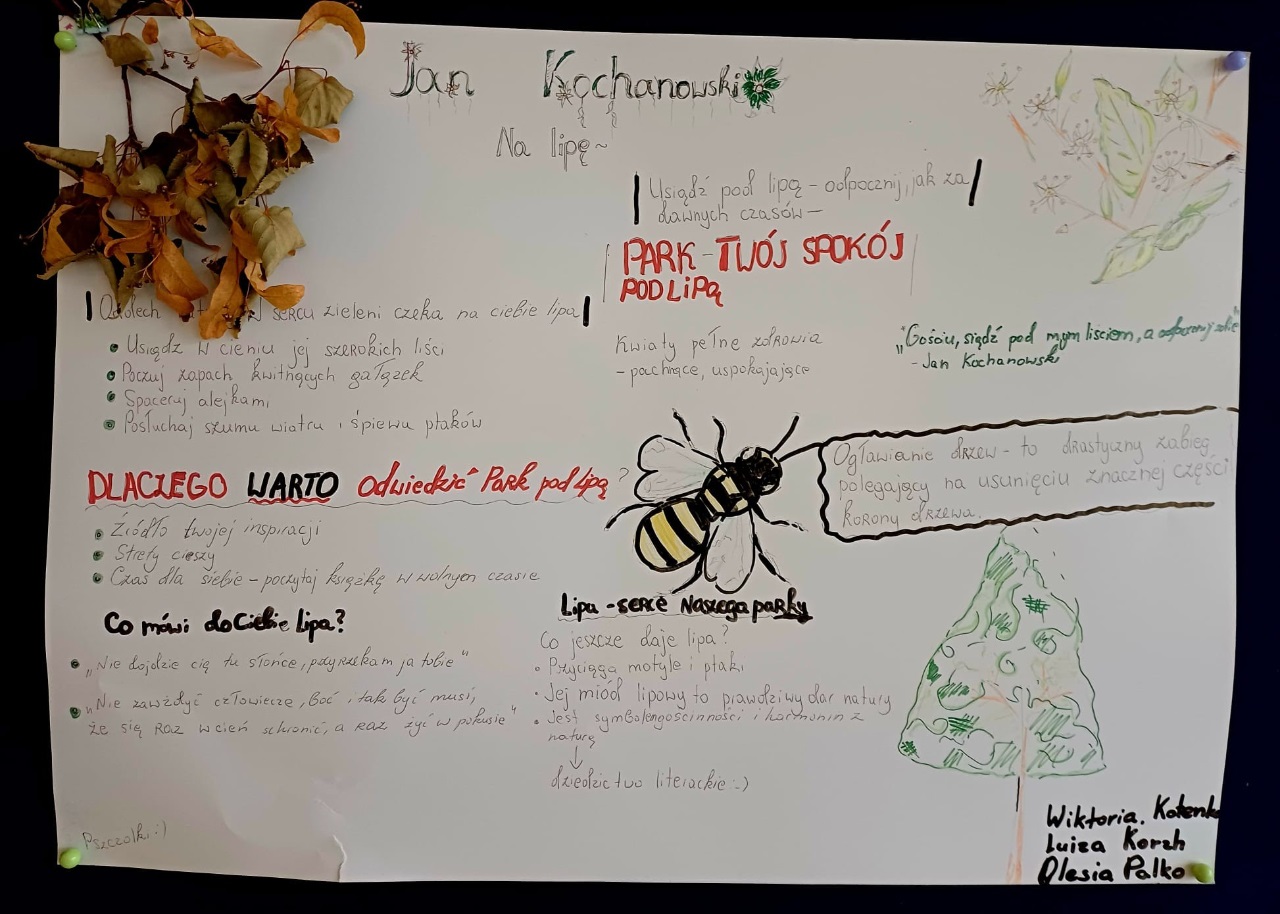 Jan Kochanowski
Na lipę~
Usiądź pod lipą - odpocznij, jak za
dawnych czasów—
PARK - TWÓJ SPOKÓJ
POD LiPĄ
sercu zieleni czeka na ciebie lipa
Usiądz w cieniu jej szerokich liści
Poczuj zapach kwitnących gałązek
Spaceruj alejkami
Posłuchaj szumu wiatru i śpiewu ptaków
Kwiaty pełne zdrowia
- pachnące, uspokajające
"Gościu, siądź pod mym liściem, a odpocznij sobie"
- Jan Kochanowski
DLACZEGO WARTO Odwiedzić Park pod lipą?
Źródło twojej inspiracji
Strefy ciszy
Czas dla siebie - poczytaj książkę w wolnym czasie
Ogławianie drzew - to drastyczny zabieg
polegający na usunięciu znacznej części
korony drzewa.
Co mówi do Ciebie Lipa?
„Nie dojdzie cię tu słońce, przyrzekam ja tobie"
„Nie zawżdyć człowiecze, Boć i tak być musi,
że się raz w cień schronić, a raz żyć w pokusie"
Lipa - serce Naszego parku
Co jeszcze daje lipa?
Przyciąga motyle i ptaki
Jej miód lipowy to prawdziwy dar natury
Jest symbolem gościnności i harmonin z
naturą
↓
dziedzictwo literackie :-)
Pszczółki :)
Wiktoria. Kotenko
Luiza Korzh
Olesia Palko